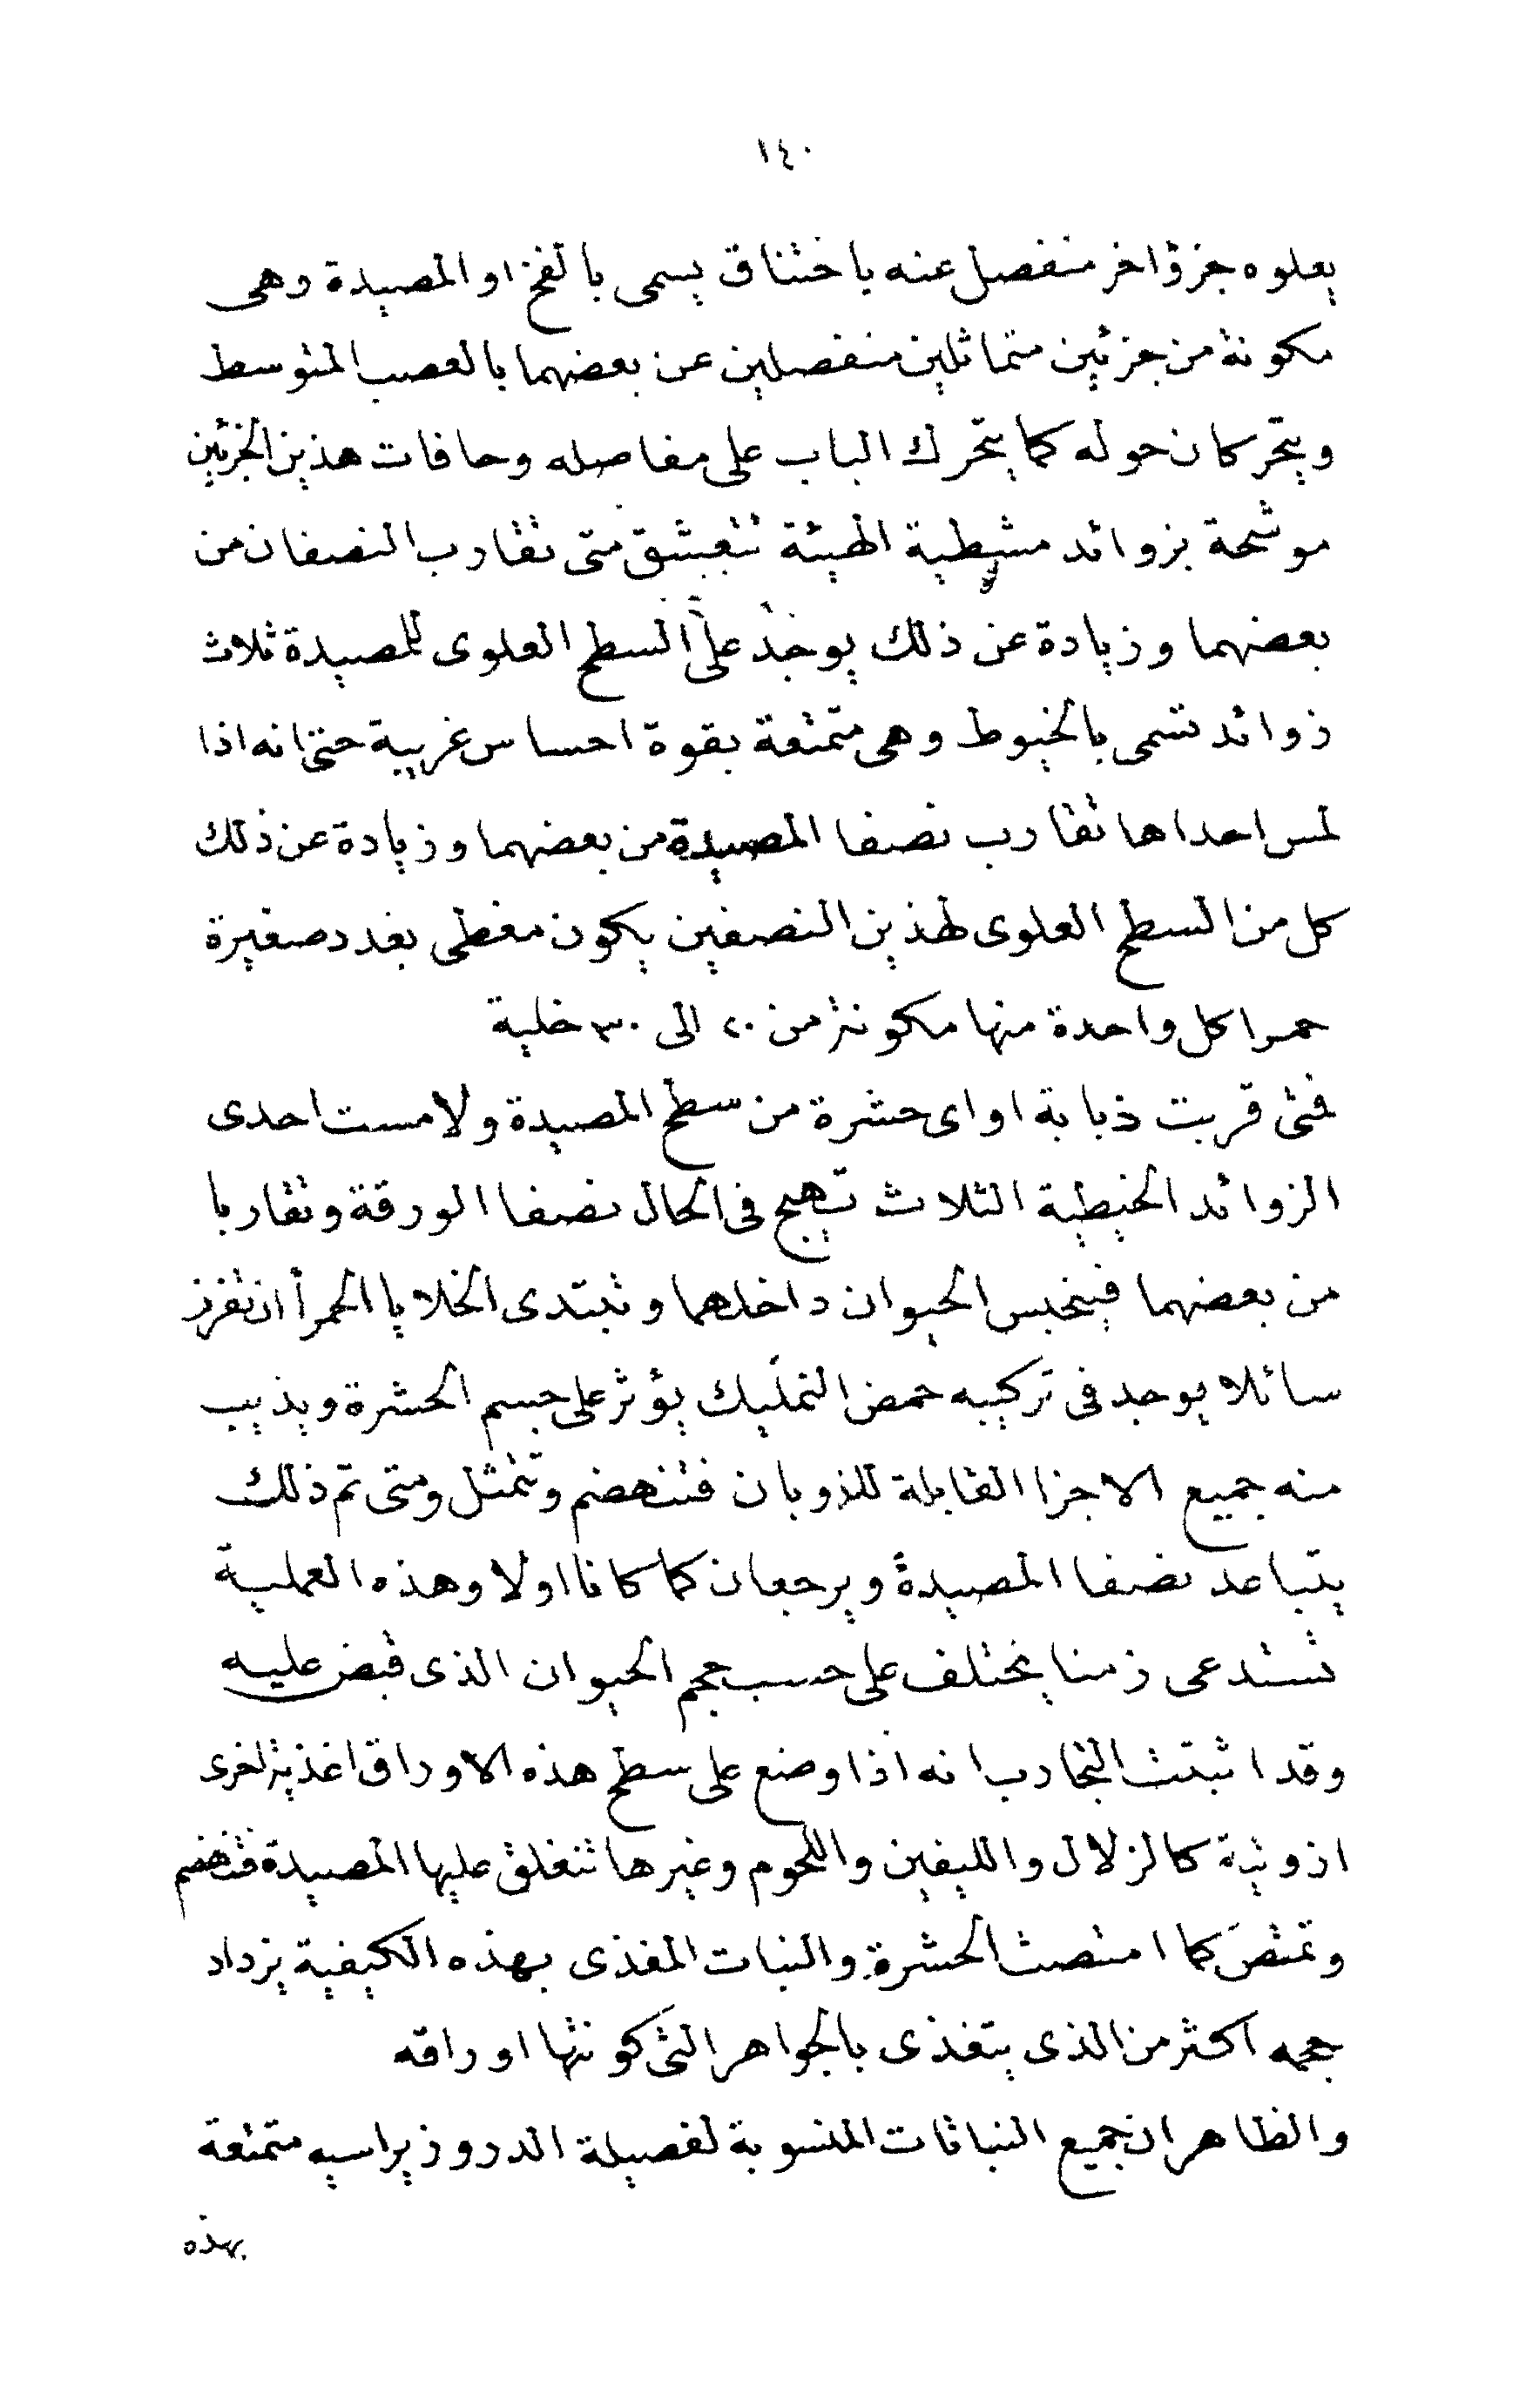 ١٤٠
يعلوه جزؤ اخر منفصل عنه باختناق يسمى بالفخ او المصيدة وهى
مكونة من جزئين متماثلين منفصلين عن بعضهما بالعصب المتوسط
ويتحركان حوله كما يتحرك الباب على مفاصله وحافات هذين الجزئين
موشحة بزوائد مشطية الهيئة تتعشق متى تقارب النصفان من
بعضهما وزيادة عن ذلك يوجد على السطح العلوى للمصيدة ثلاث
زوائد تسمى بالخيوط وهى متمتعة بقوة احساس غريبة حتى انه اذا
لمس احداها تقارب نصفا المصيدة من بعضهما وزيادة عن ذلك
كل من السطح العلوى لهذين النصفين يكون مغطى بغدد صغيرة
حمرا كل واحدة منها مكونة من ٢٠ الى ٣٠ خلية
فمتى قربت ذبابة او اى حشرة من سطح المصيدة ولامست احدى
الزوائد الخيطية الثلاث تهيج فى الحال نصفا الورقة وتقاربا
من بعضهما فينحبس الحيوان داخلهما وتبتدى الخلايا الحمرأ ان تفرز
سائلا يوجد فى تركيبه حمض النمليك يؤثر على جسم الحشرة ويذيب
منه جميع الاجزا القابلة للذوبان فتنهضم وتتمثل ومتى تم ذلك
يتباعد نصفا المصيدة ويرجعان كما كانا اولا وهذه العملية
تستدعى زمنا يختلف على حسب حجم الحيوان الذى قبض عليه
وقد اثبتت التجارب انه اذا وضع على سطح هذه الاوراق اغذية اخرى
ازوتية كالزلال والليفين واللحوم وغيرها تنغلق عليها المصيدة فتنهضم
وتمتص كما امتصت الحشرة والنبات المغذى بهذه الكيفية يزداد
حجمه اكثر من الذى يتغذى بالجواهر التى كونتها اوراقه
والظاهر ان جميع النباتات المنسوبة لفصيلة الدروزيراسيه متمتعة
بهذه